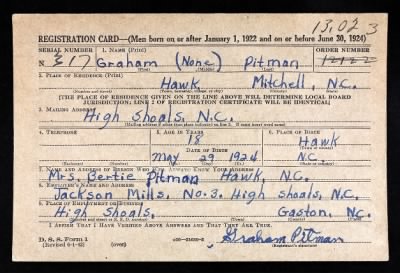 13,023
REGISTRATION CARD—(Men born on or after January 1, 1922 and on or before June 30, 1924)
SERIAL NUMBER 1. NAME (Print) ORDER NUMBER
N 317 Graham (None) Pitman 12122
(First) (Middle) (Last)
2. PLACE OF RESIDENCE (Print)
Hawk Mitchell, N.C.
[THE PLACE OF RESIDENCE GIVEN ON THE LINE ABOVE WILL DETERMINE LOCAL BOARD
JURISDICTION; LINE 2 OF REGISTRATION CERTIFICATE WILL BE IDENTICAL]
3. MAILING ADDRESS
High Shoals, N.C.
[Mailing address if other than place indicated on line 2. If same insert word same]
4. TELEPHONE 5. AGE IN YEARS 6. PLACE OF BIRTH
18 Hawk
DATE OF BIRTH (Town or county)
May 29 1924 N.C.
(Exchange) (Number) (Mo.) (Day) (Yr.) (State or country)
7. NAME AND ADDRESS OF PERSON WHO WILL ALWAYS KNOW YOUR ADDRESS
Mrs. Bertie Pitman Hawk, N.C.
8. EMPLOYER'S NAME AND ADDRESS
Jackson Mills, No. 3. High Shoals, N.C.
9. PLACE OF EMPLOYMENT OR BUSINESS
High Shoals, Gaston, N.C.
(Number and street or R. F. D. number) (Town) (County) (State)
I AFFIRM THAT I HAVE VERIFIED ABOVE ANSWERS AND THAT THEY ARE TRUE.
D. S. S. Form 1
(Revised 6-1-42) (over) Graham Pitman
(Registrant's signature)